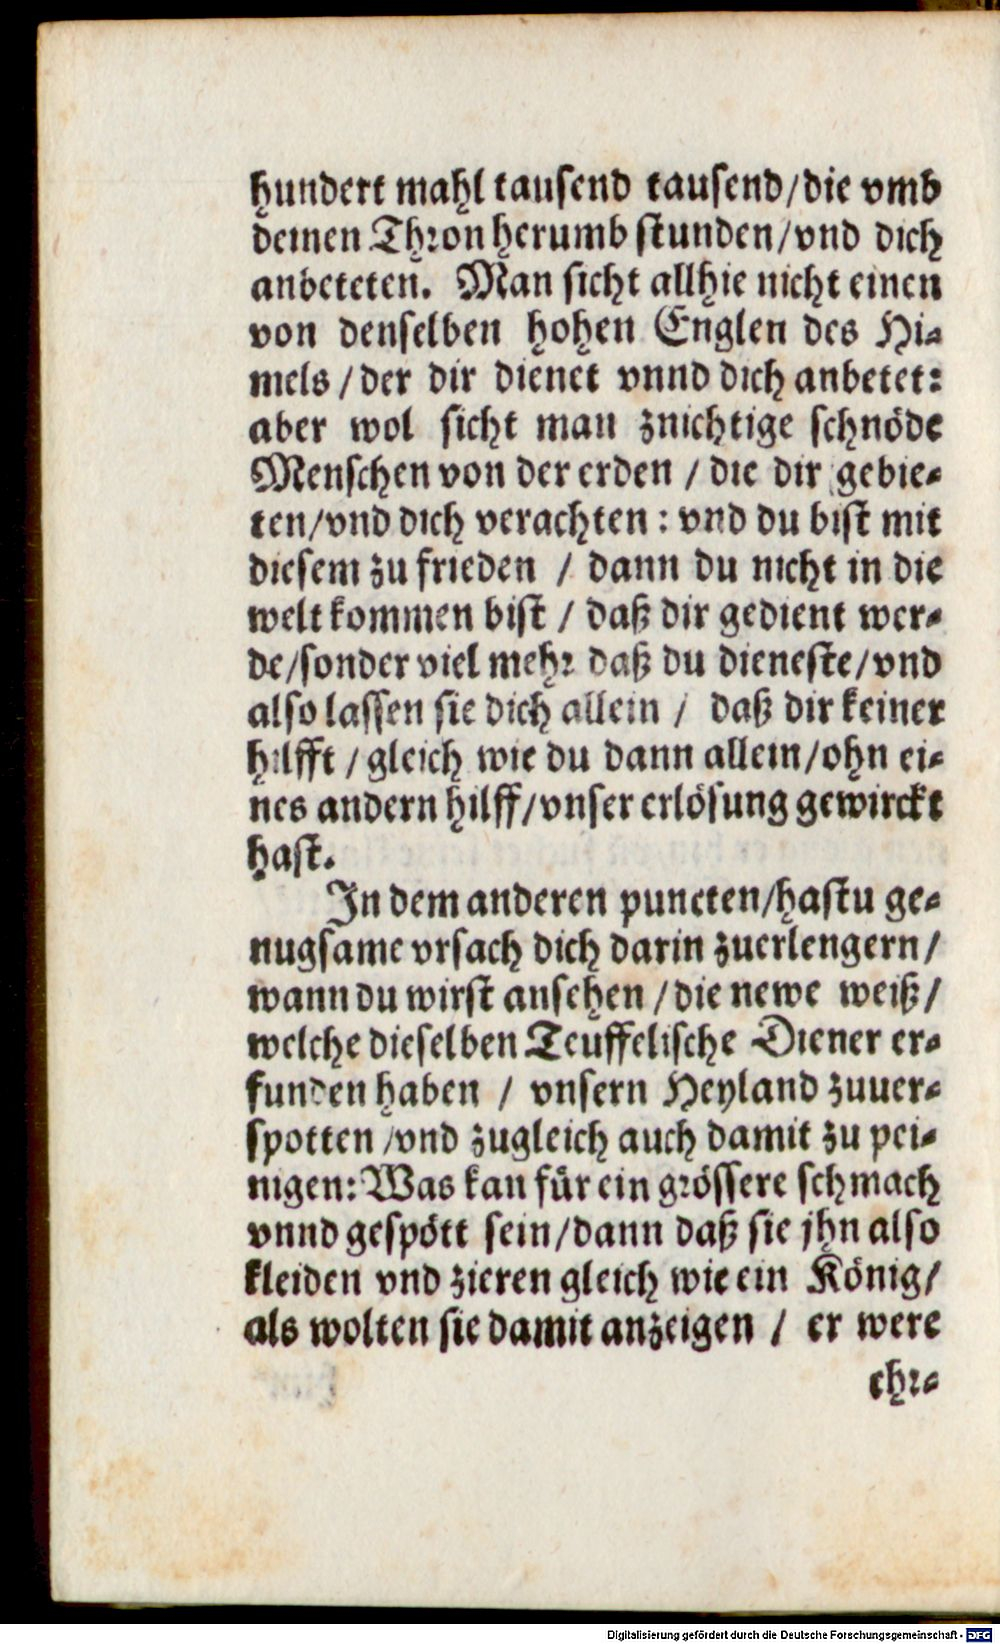 hundert mahl tausend tausend/die vmb
deinen Thron herumb stunden/vnd dich
anbeteten. Man sicht allhie nicht einen
von denselben hohen Englen des Hi-
mels / der dir dienet vnnd dich anbetet:
aber wol sicht man znichtige schnöde
Menschen von der erden / die dir gebie-
ten/vnd dich verachten : vnd du bist mit
diesem zu frieden / dann du nicht in die
welt kommen bist / daß dir gedient wer-
de/sonder viel mehr daß du dieneste/vnd
also lassen sie dich allein / daß dir keiner
hilfft / gleich wie du dann allein/ohn ei-
nes andern hilff/vnser erlösung gewirckt
hast.
In dem anderen puncten/hastu ge-
nugsame vrsach dich darin zuerlengern/
wann du wirst ansehen / die newe weiß/
welche dieselben Teuffelische Diener er-
funden haben / vnsern Heyland zuuer-
spotten /vnd zugleich auch damit zu pei-
nigen: Was kan für ein grössere schmach
vnnd gespött sein/dann daß sie jhn also
kleiden vnd zieren gleich wie ein König/
als wolten sie damit anzeigen / er were
ehr-
Digitalisierung gefördert durch die Deutsche Forschungsgemeinschaft - DFG